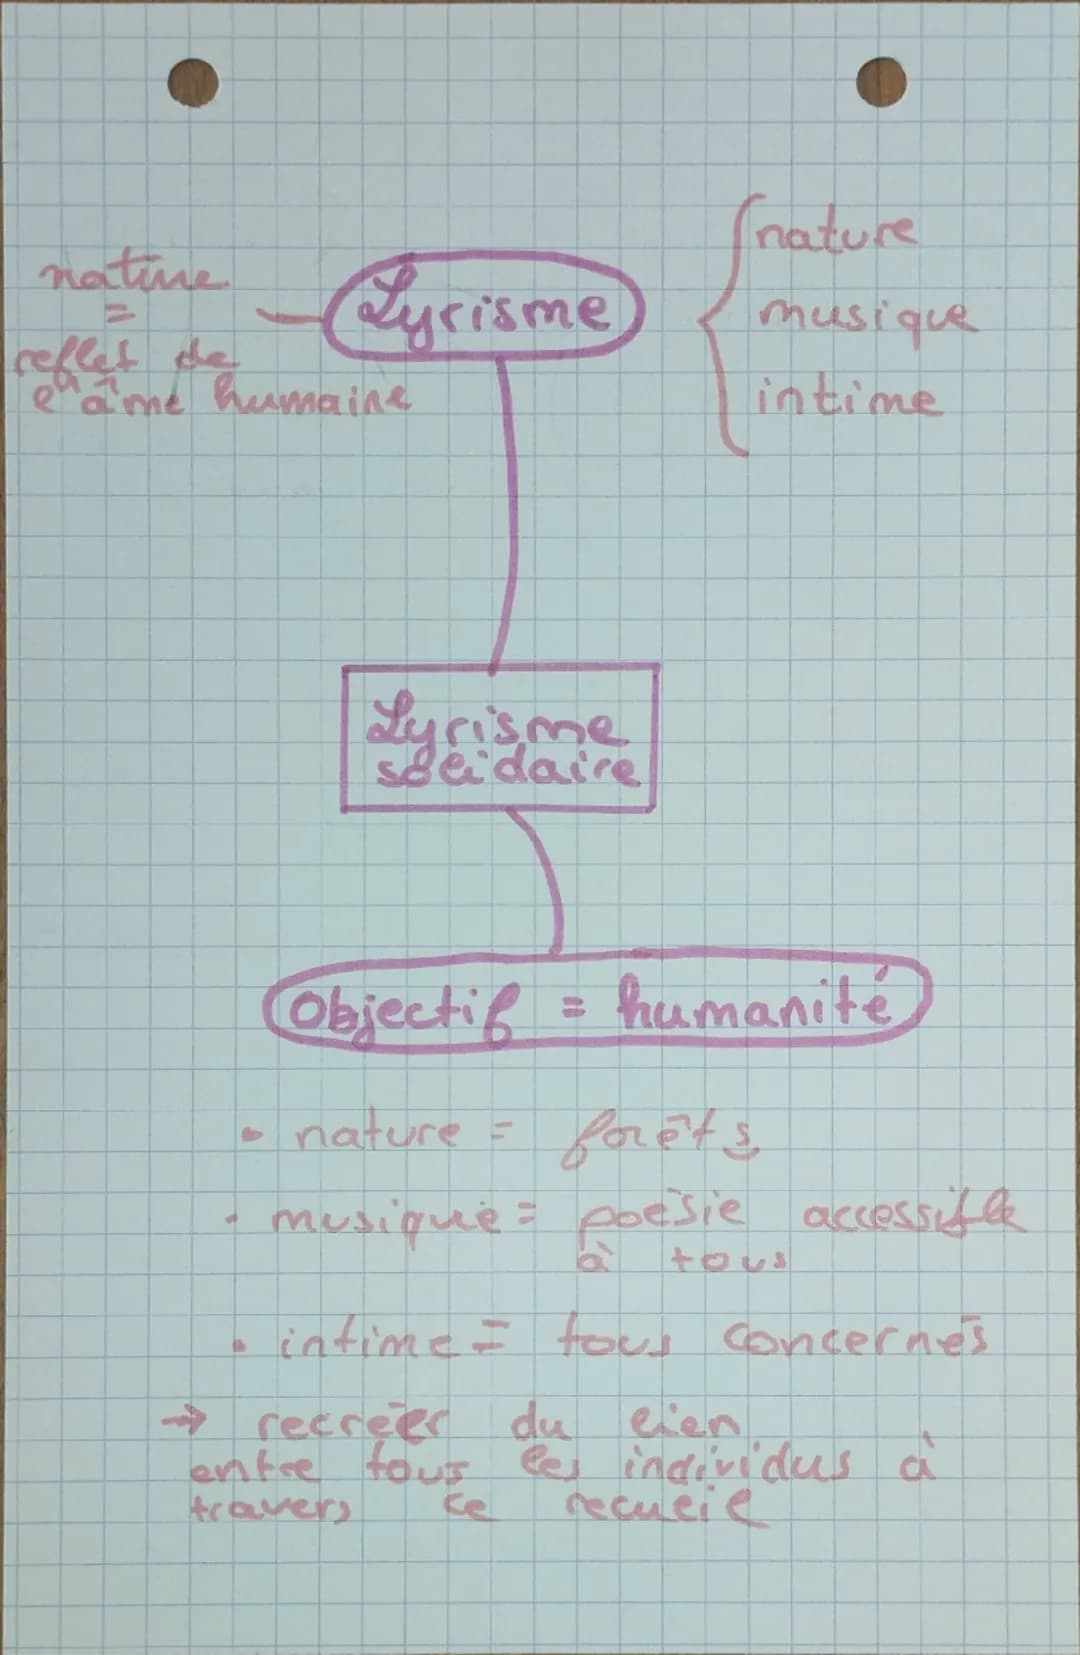 nature
=
reflet de
l'âme humaine
Lyrisme
nature
musique
intime
Lyrisme
solidaire
Objectif = humanité
• nature = forêts
• musique = poésie accessible
à tous
• intime = tous concernés
→ recréer du lien
entre tous les individus à
travers ce recueil